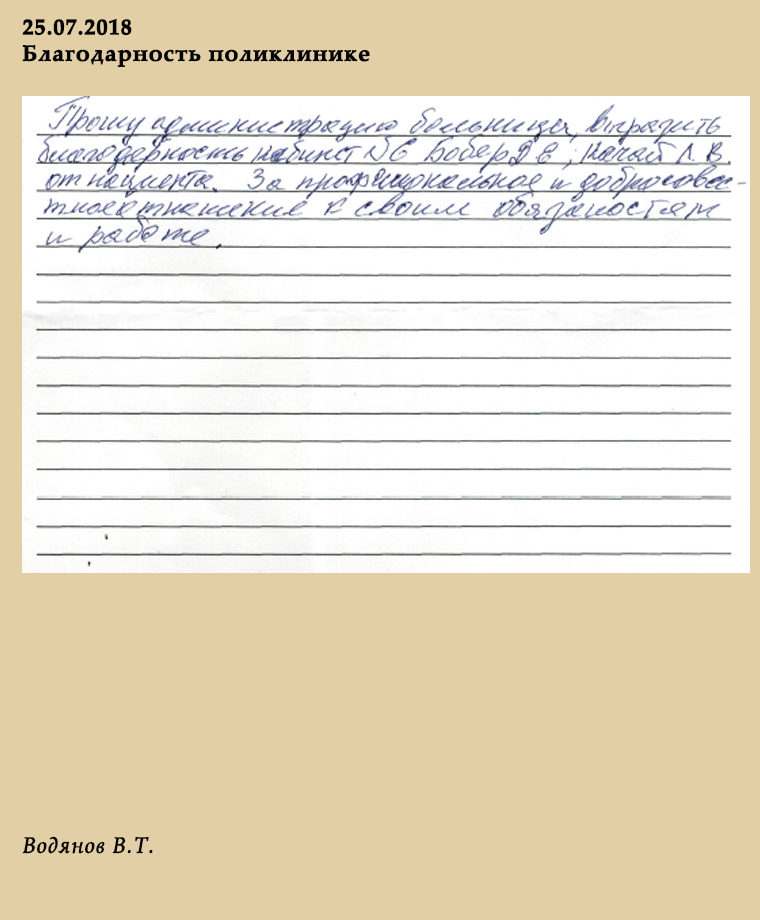 25.07.2018
Благодарность поликлинике
Прошу администрацию больницы, выразить
благодарность кабинет №6 Бобер Д в, Качай Л. В.
от пациента. За професиональное и добросовес-
тное отношение к своим обязаностям
и работе.
Водянов В.Т.